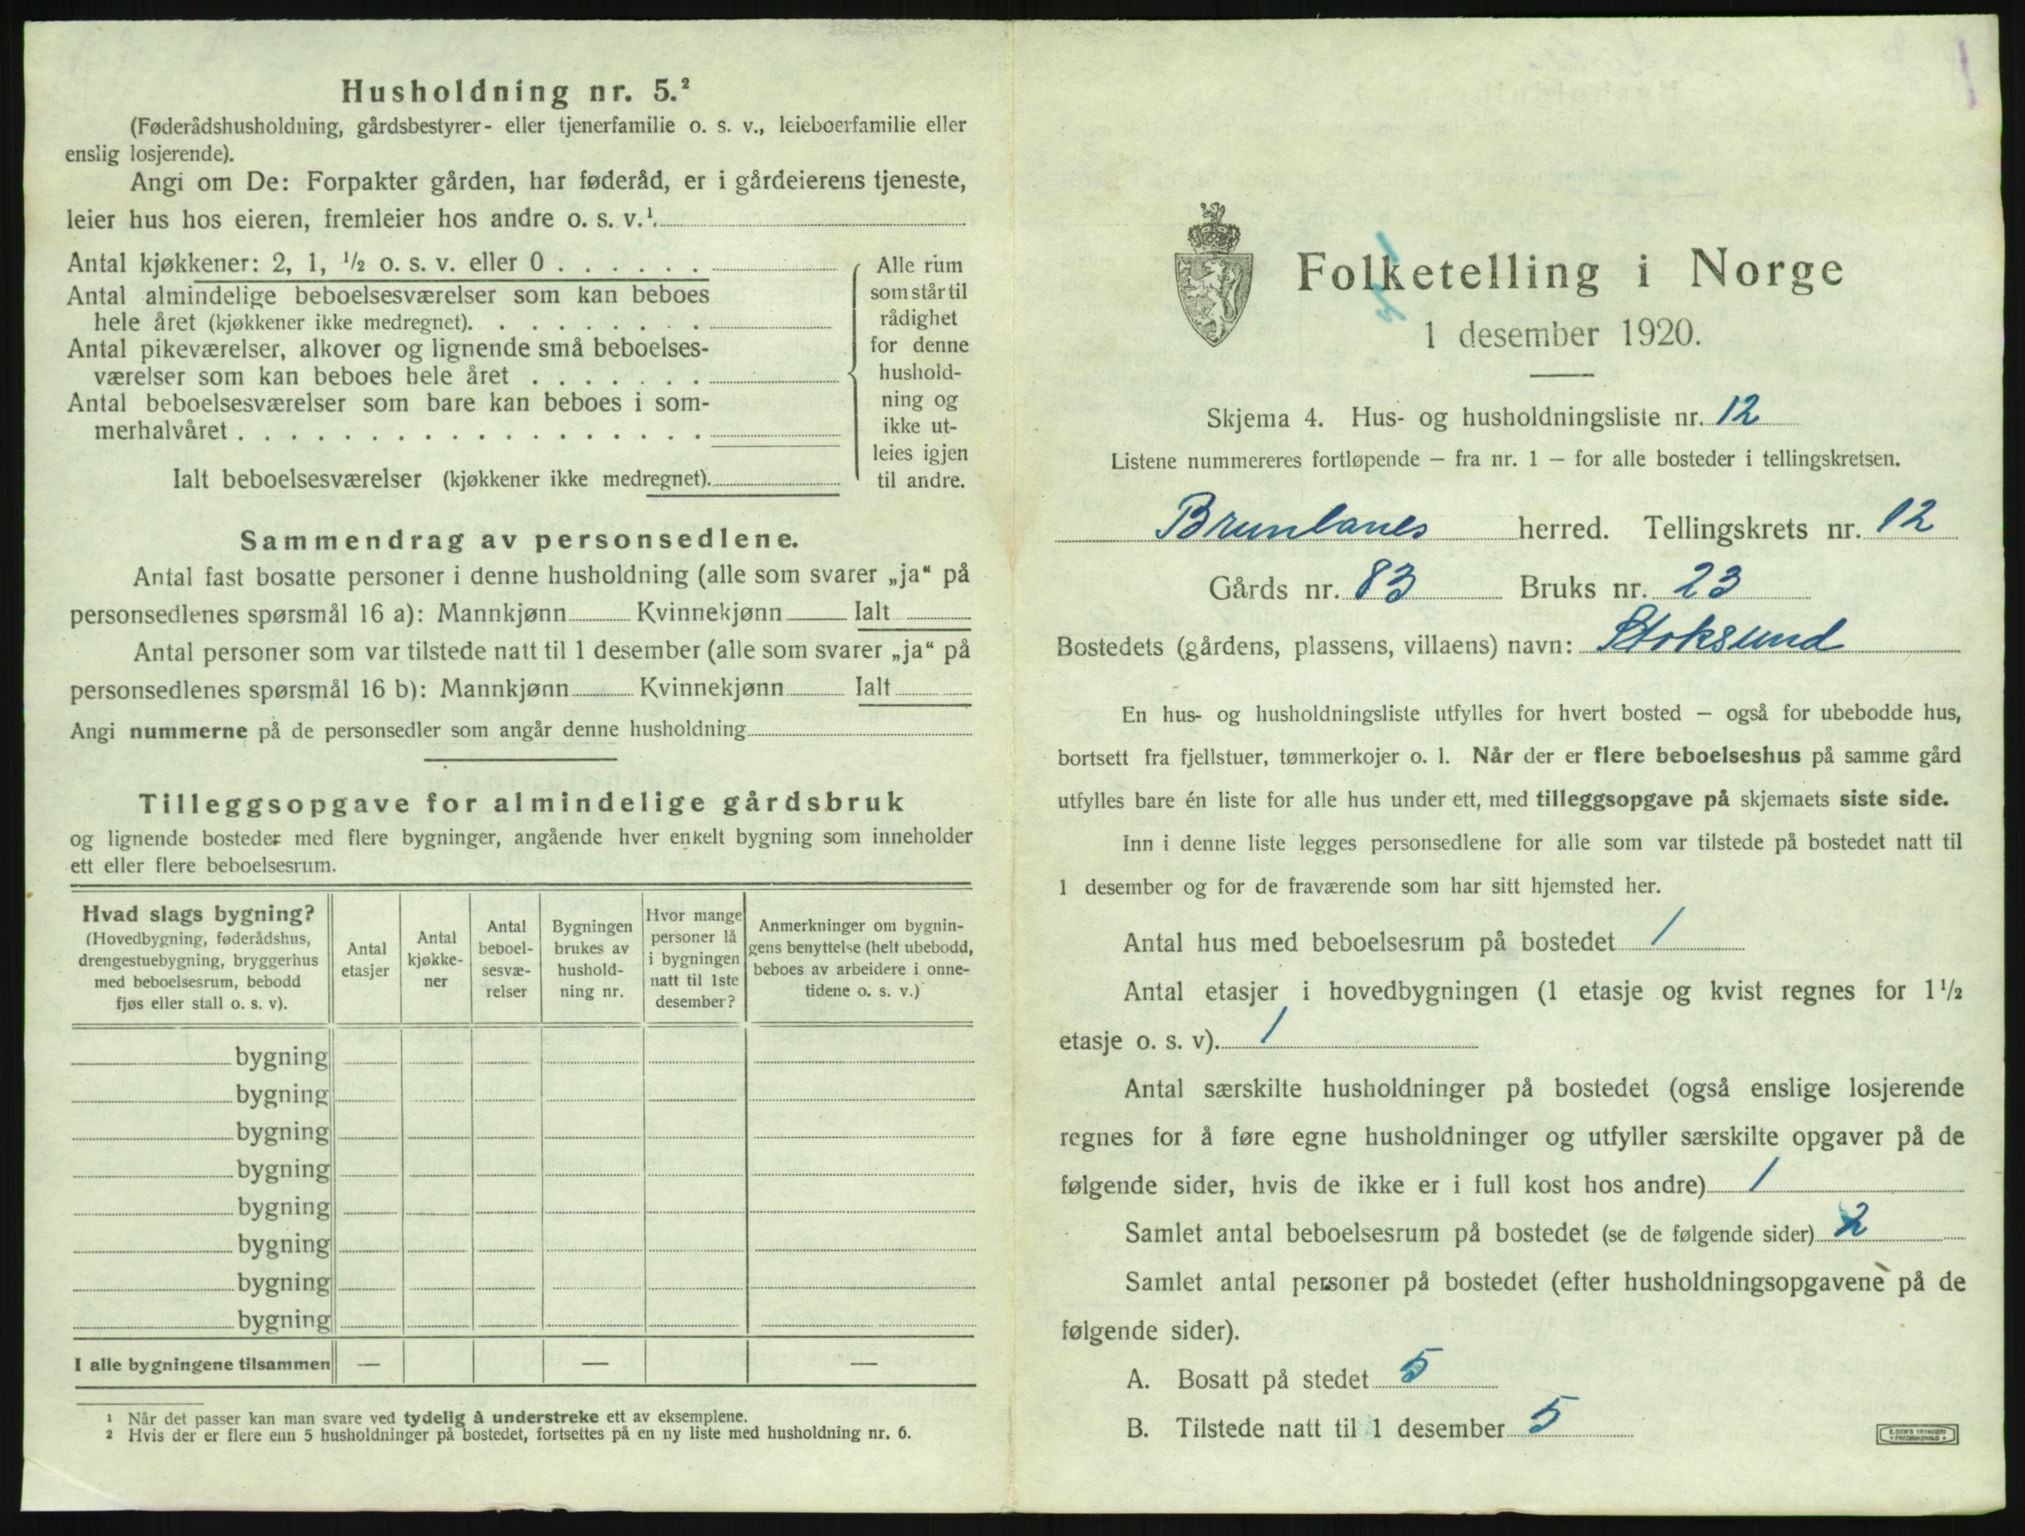 Husholdning nr. 5.²
(Føderådshusholdning, gårdsbestyrer- eller tjenerfamilie o. s. v., leieboerfamilie eller
enslig losjerende).
Angi om De: Forpakter gården, har føderåd, er i gårdeierens tjeneste,
leier hus hos eieren, fremleier hos andre o. s. v.¹
Antal kjøkkener: 2, 1, ½ o. s. v. eller 0 . . . . . .
Antal almindelige beboelsesværelser som kan beboes
hele året (kjøkkener ikke medregnet). . . . . . . . .
Antal pikeværelser, alkover og lignende små beboelses-
værelser som kan beboes hele året . . . . . . .
Antal beboelsesværelser som bare kan beboes i som-
merhalvåret . . . . . . . . . . . . . . . . . .
Ialt beboelsesværelser (kjøkkener ikke medregnet).
Alle rum
som står til
rådighet
for denne
hushold-
ning og
ikke ut-
leies igjen
til andre.
Sammendrag av personsedlene.
Antal fast bosatte personer i denne husholdning (alle som svarer „ja“ på
personsedlenes spørsmål 16 a): Mannkjønn Kvinnekjønn Ialt
Antal personer som var tilstede natt til 1 desember (alle som svarer „ja“ på
personsedlenes spørsmål 16 b): Mannkjønn Kvinnekjønn Ialt
Angi nummerne på de personsedler som angår denne husholdning
Tilleggsopgave for almindelige gårdsbruk
og lignende bosteder med flere bygninger, angående hver enkelt bygning som inneholder
ett eller flere beboelsesrum.
Hvad slags bygning?
(Hovedbygning, føderådshus,
drengestuebygning, bryggerhus
med beboelsesrum, bebodd
fjøs eller stall o. s. v).
Antal
etasjer
Antal
kjøkke-
ner
Antal
beboel-
sesvæ-
relser
Bygningen
brukes av
hushold-
ning nr.
Hvor mange
personer lå
i bygningen
natt til 1ste
desember?
Anmerkninger om bygnin-
gens benyttelse (helt ubebodd,
beboes av arbeidere i onne-
tidene o. s. v.)
bygning
bygning
bygning
bygning
bygning
bygning
bygning
bygning
I alle bygningene tilsammen — — —
¹ Når det passer kan man svare ved tydelig å understreke ett av eksemplene.
² Hvis der er flere enn 5 husholdninger på bostedet, fortsettes på en ny liste med husholdning nr. 6.
Folketelling i Norge
1 desember 1920.
Skjema 4. Hus- og husholdningsliste nr. 12
Listene nummereres fortløpende — fra nr. 1 — for alle bosteder i tellingskretsen.
Brunlanes herred. Tellingskrets nr. 12
Gårds nr. 83 Bruks nr. 23
Bostedets (gårdens, plassens, villaens) navn: Stoksund
En hus- og husholdningsliste utfylles for hvert bosted — også for ubebodde hus,
bortsett fra fjellstuer, tømmerkojer o. l. Når der er flere beboelseshus på samme gård
utfylles bare én liste for alle hus under ett, med tilleggsopgave på skjemaets siste side.
Inn i denne liste legges personsedlene for alle som var tilstede på bostedet natt til
1 desember og for de fraværende som har sitt hjemsted her.
Antal hus med beboelsesrum på bostedet 1
Antal etasjer i hovedbygningen (1 etasje og kvist regnes for 1½
etasje o. s. v). 1
Antal særskilte husholdninger på bostedet (også enslige losjerende
regnes for å føre egne husholdninger og utfyller særskilte opgaver på de
følgende sider, hvis de ikke er i full kost hos andre) 1
Samlet antal beboelsesrum på bostedet (se de følgende sider) 2
Samlet antal personer på bostedet (efter husholdningsopgavene på de
følgende sider).
A. Bosatt på stedet 5
B. Tilstede natt til 1 desember 5